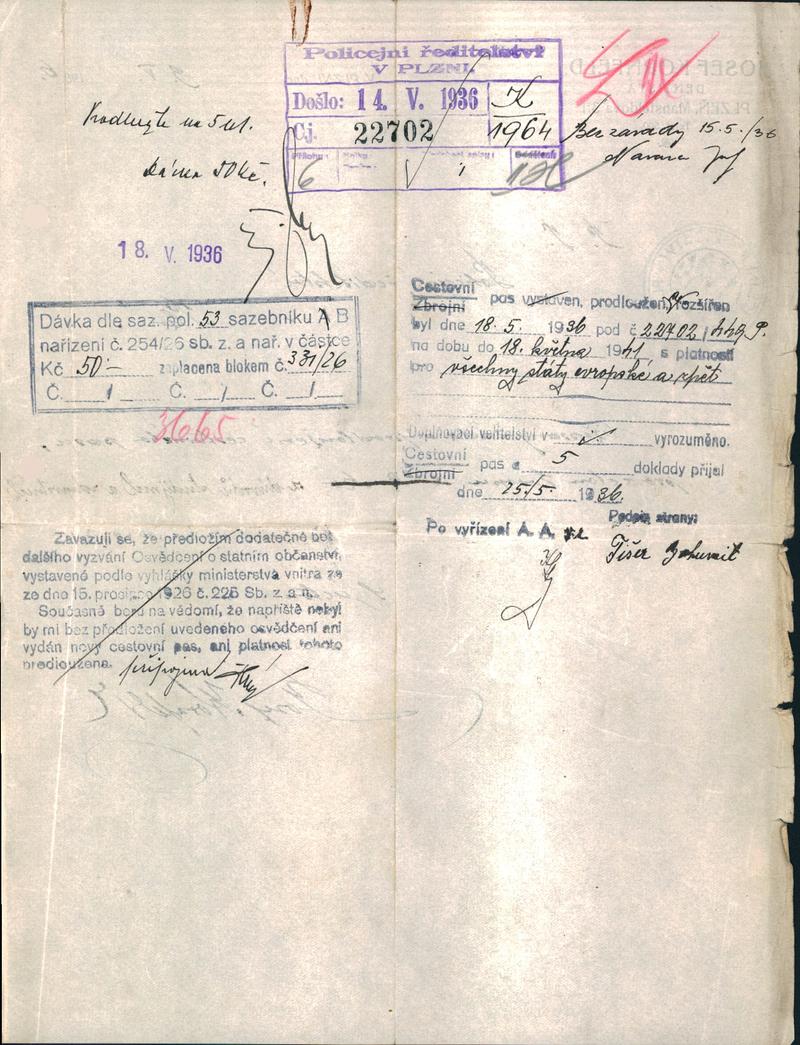 Policejní ředitelství
V PLZNI.
Došlo: 14. V. 1936 K
Čj. 22702 1964
6
Prodlužte na 5 let.
Dávka 50 Kč.
Bez závady 15.5./36
18. V. 1936
Dávka dle saz. pol. 53 sazebníku A B
nařízení č. 254/26 sb. z. a nař. v částce
Kč 50·— zaplacena blokem č. 331/26
Č. / Č. / Č. /
3665
Cestovní
Zbrojní pas vystaven, prodloužen, rozšířen
byl dne 18.5. 1936 pod č 22702
na dobu do 18. května 1941, s platností
pro všechny státy evropské a zpět
Doplňovací velitelství v vyrozuměno.
Cestovní
Zbrojní pas a 5 doklady přijal
dne 25/5. 1936.
Po vyřízení A. A. Podpis strany:
Fišer Bohumil
Zavazuji se, že předložím dodatečně bez
dalšího vyzvání Osvědčení o státním občanství,
vystavené podle vyhlášky ministerstva vnitra ze
ze dne 15. prosince 1926 č. 225 Sb. z. a n.
Současně beru na vědomí, že napříště nebyl
by mi bez předložení uvedeného osvědčení ani
vydán nový cestovní pas, ani platnost tohoto
prodloužena.
připojeno